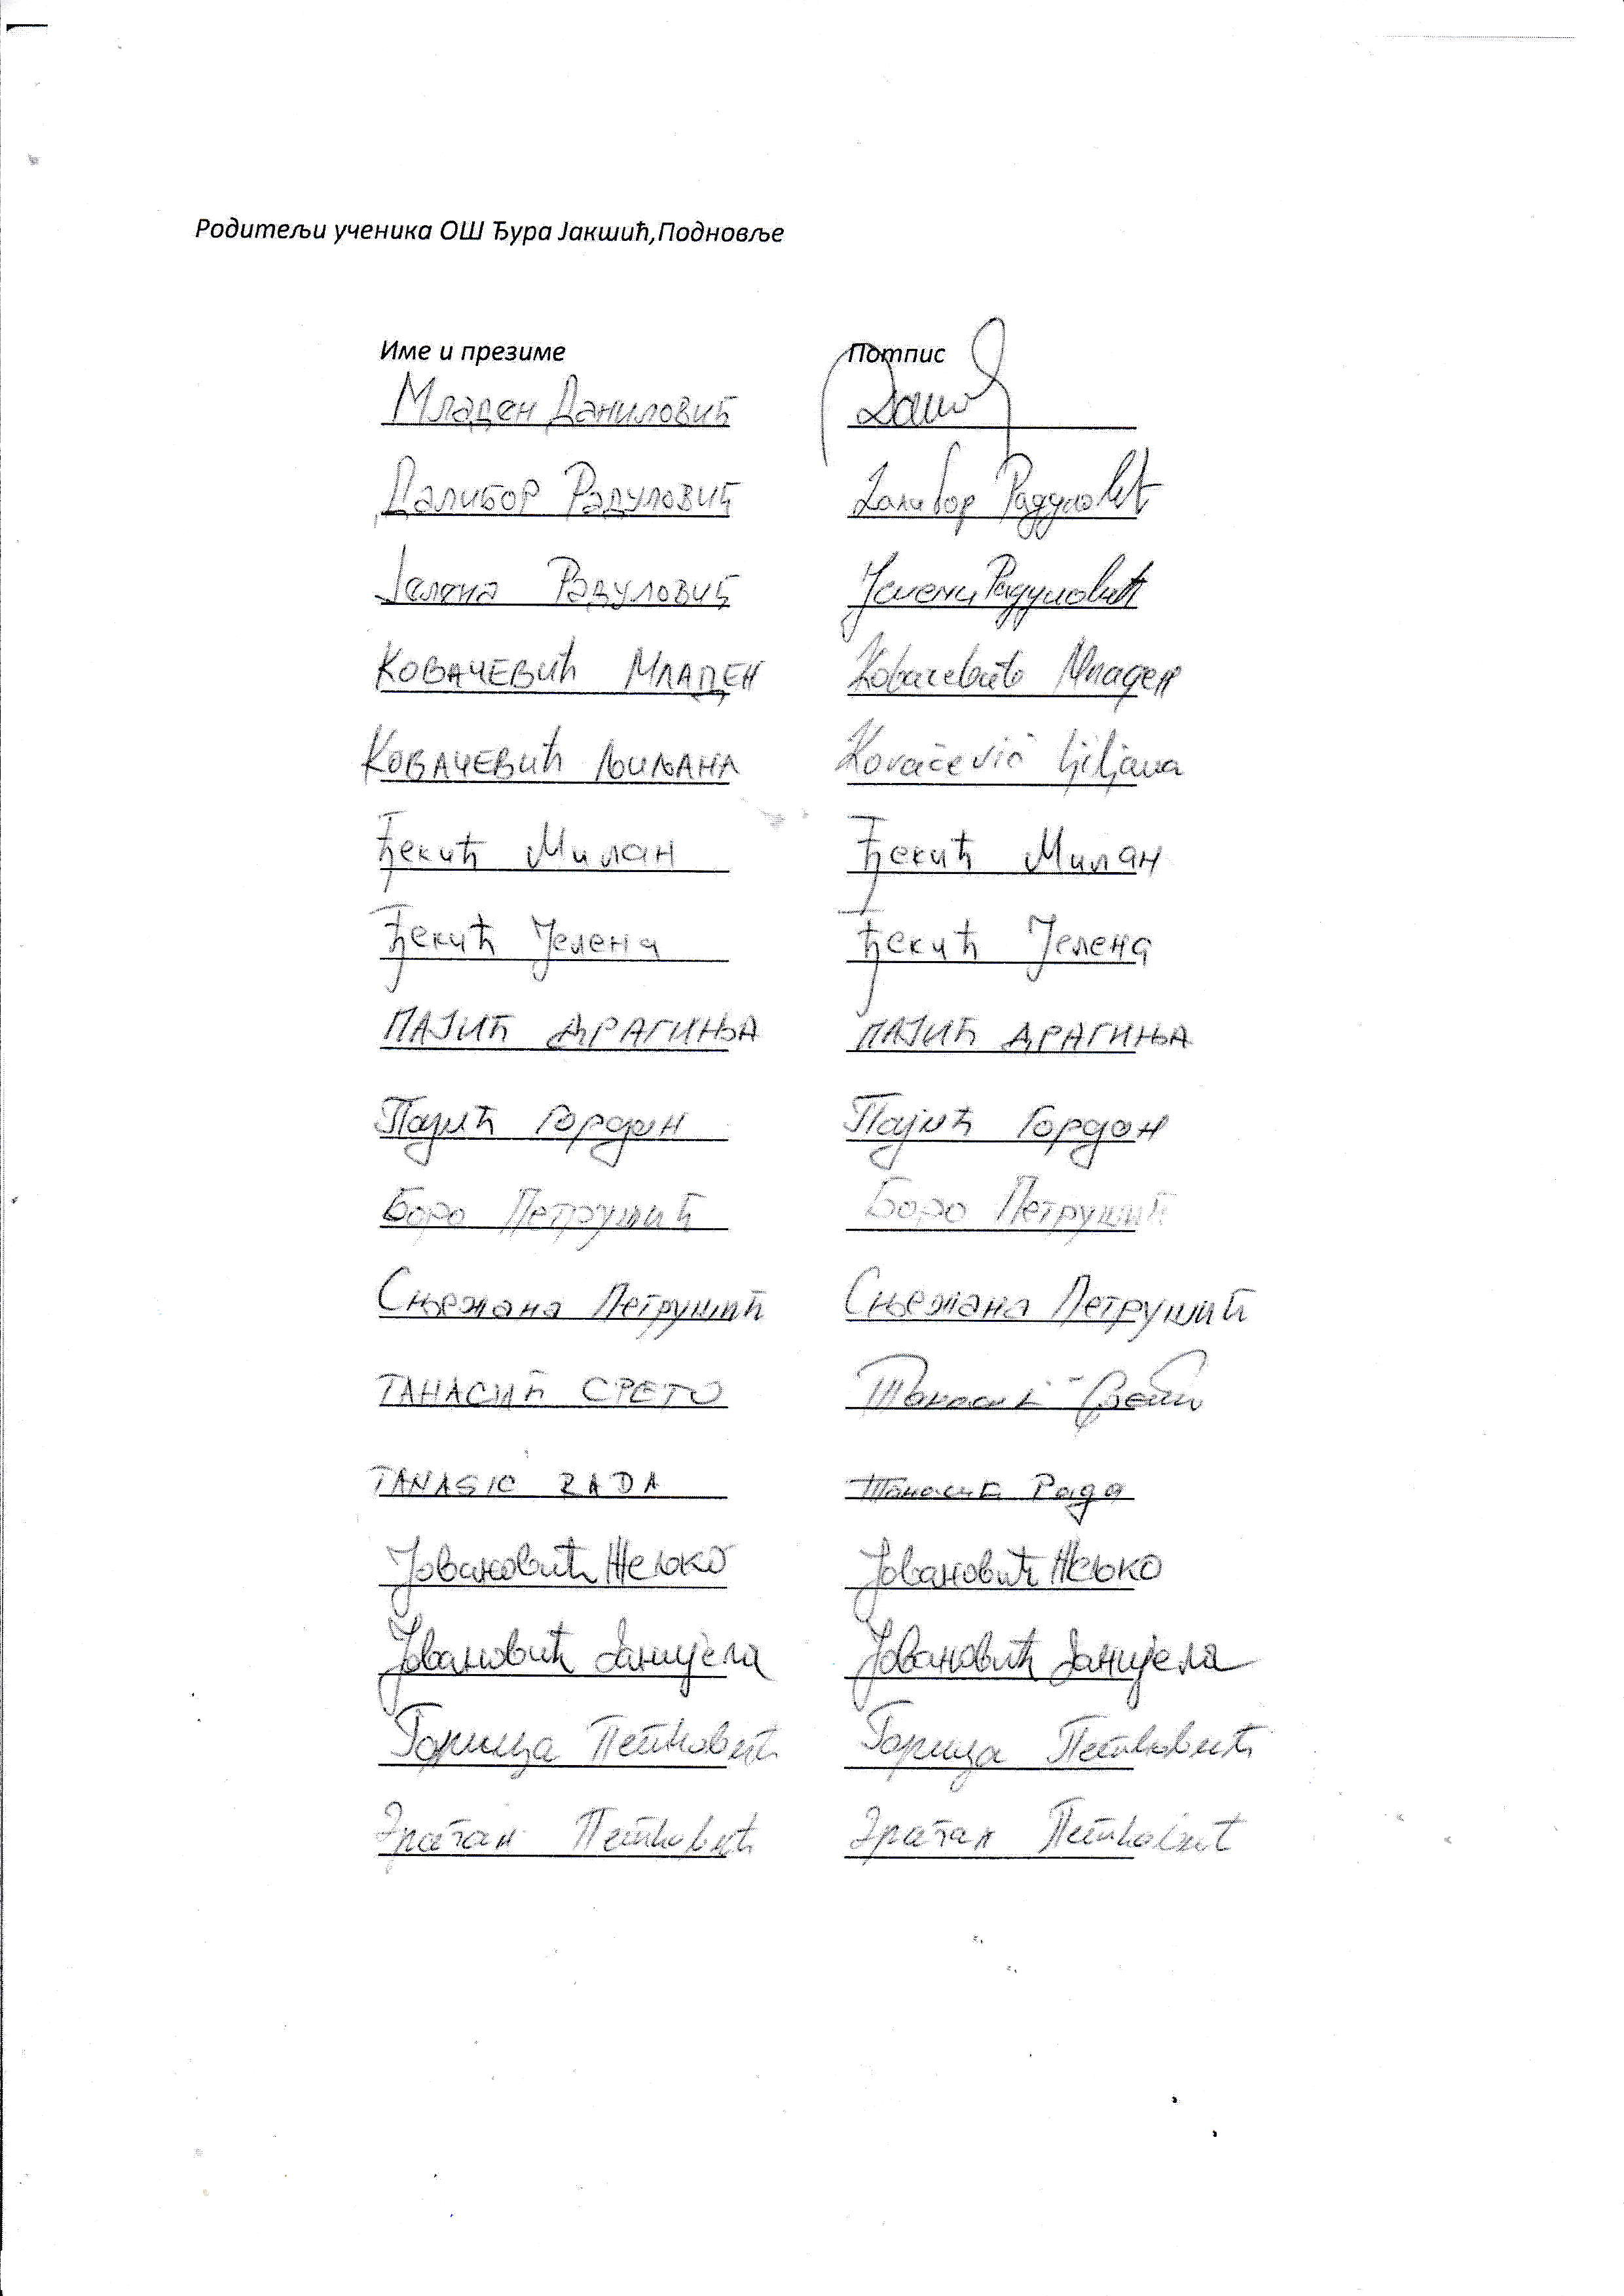 Родитељи ученика ОШ Ђура Јакшић,Подновље
Име и презиме Потпис
Младен Даниловић
Далибор Радуловић Далибор Радуловић
Јелена Радуловић Јелена Радуловић
КОВАЧЕВИЋ МЛАДЕН Ковачевић Младен
КОВАЧЕВИЋ ЉИЉАНА Kovačević Ljiljana
Ђекић Милан Ђекић Милан
Ђекић Јелена Ђекић Јелена
ПАЈИЋ ДРАГИЊА ПАЈИЋ ДРАГИЊА
Пајић Гордан Пајић Гордан
Боро Петрушић Боро Петрушић
Сњежана Петрушић Сњежана Петрушић
ТАНАСИЋ СРЕТО Танасић Срето
TANASIC RADA Танасић Рада
Јовановић Жељко Јовановић Жељко
Јовановић Данијела Јовановић Данијела
Горица Петковић Горица Петковић
Петковић Петковић